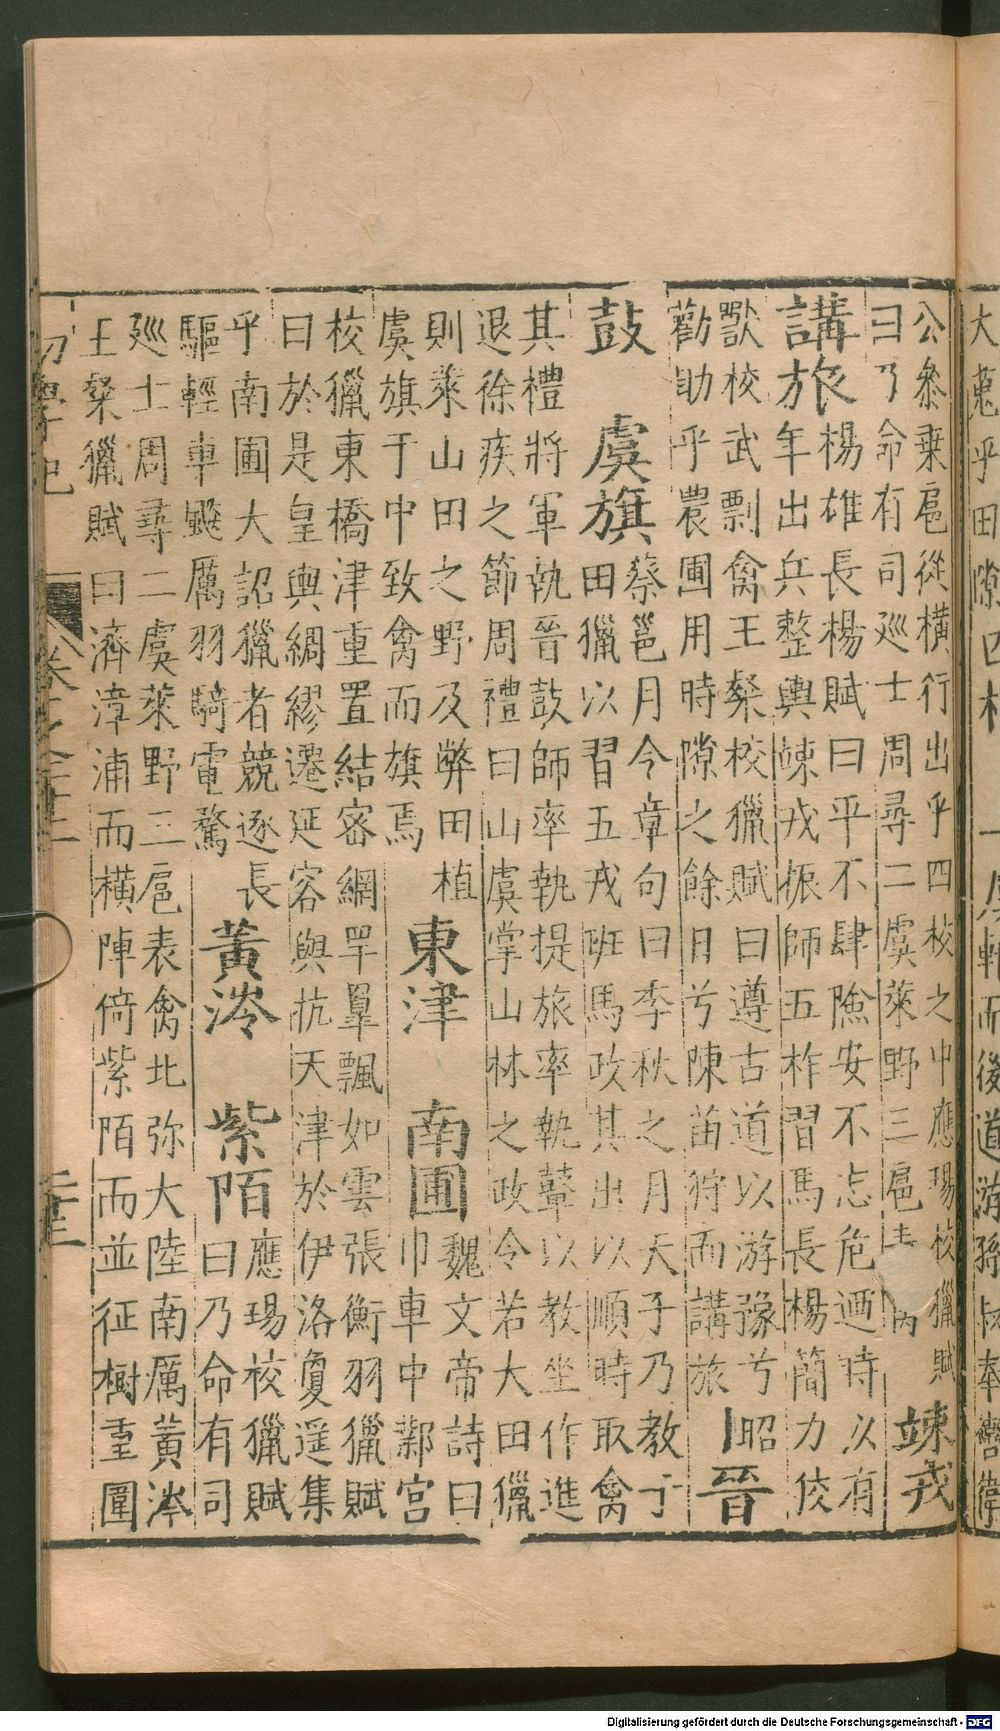 大蒐乎田隙四校
軨而後道游孫叔奉轡衛
公參乘扈從橫行出乎四校之中應瑒校獵賦
曰乃命有司巡士周尋二虞萊野三扈
竦戎
講旅
楊雄長楊賦曰平不肆險安不忘危迺時以有
年出兵整輿竦戎振師五柞習馬長楊簡力佼
獸校武剽禽王粲校獵賦曰遵古道以游豫兮昭
勸助乎農圃用時隙之餘日兮陳苗狩而講旅
晉
鼓 虞旗
蔡邕月令章句曰季秋之月天子乃教于
田獵以習五戎班馬政其出以順時取禽
其禮將軍執晉鼓師率執提旅率執鼙以教坐作進
退徐疾之節周禮曰山虞掌山林之政令若大田獵
則萊山田之野及弊田植
虞旗于中致禽而旗焉
東津 南圃
魏文帝詩曰
巾車中鄴宮
校獵東橋津重置結密網罕羣飄如雲張衡羽獵賦
曰於是皇輿綢繆遷延容與抗天津於伊洛夐遥集
乎南圃大詔獵者競逐長
驅輕車飈厲羽騎電騖
黃涔 紫陌
應瑒校獵賦
曰乃命有司
巡士周尋二虞萊野三扈表禽北弥大陸南厲黃涔
王粲獵賦曰濟漳浦而橫陣倚紫陌而並征樹重圍
初學記
Digitalisierung gefördert durch die Deutsche Forschungsgemeinschaft - DFG